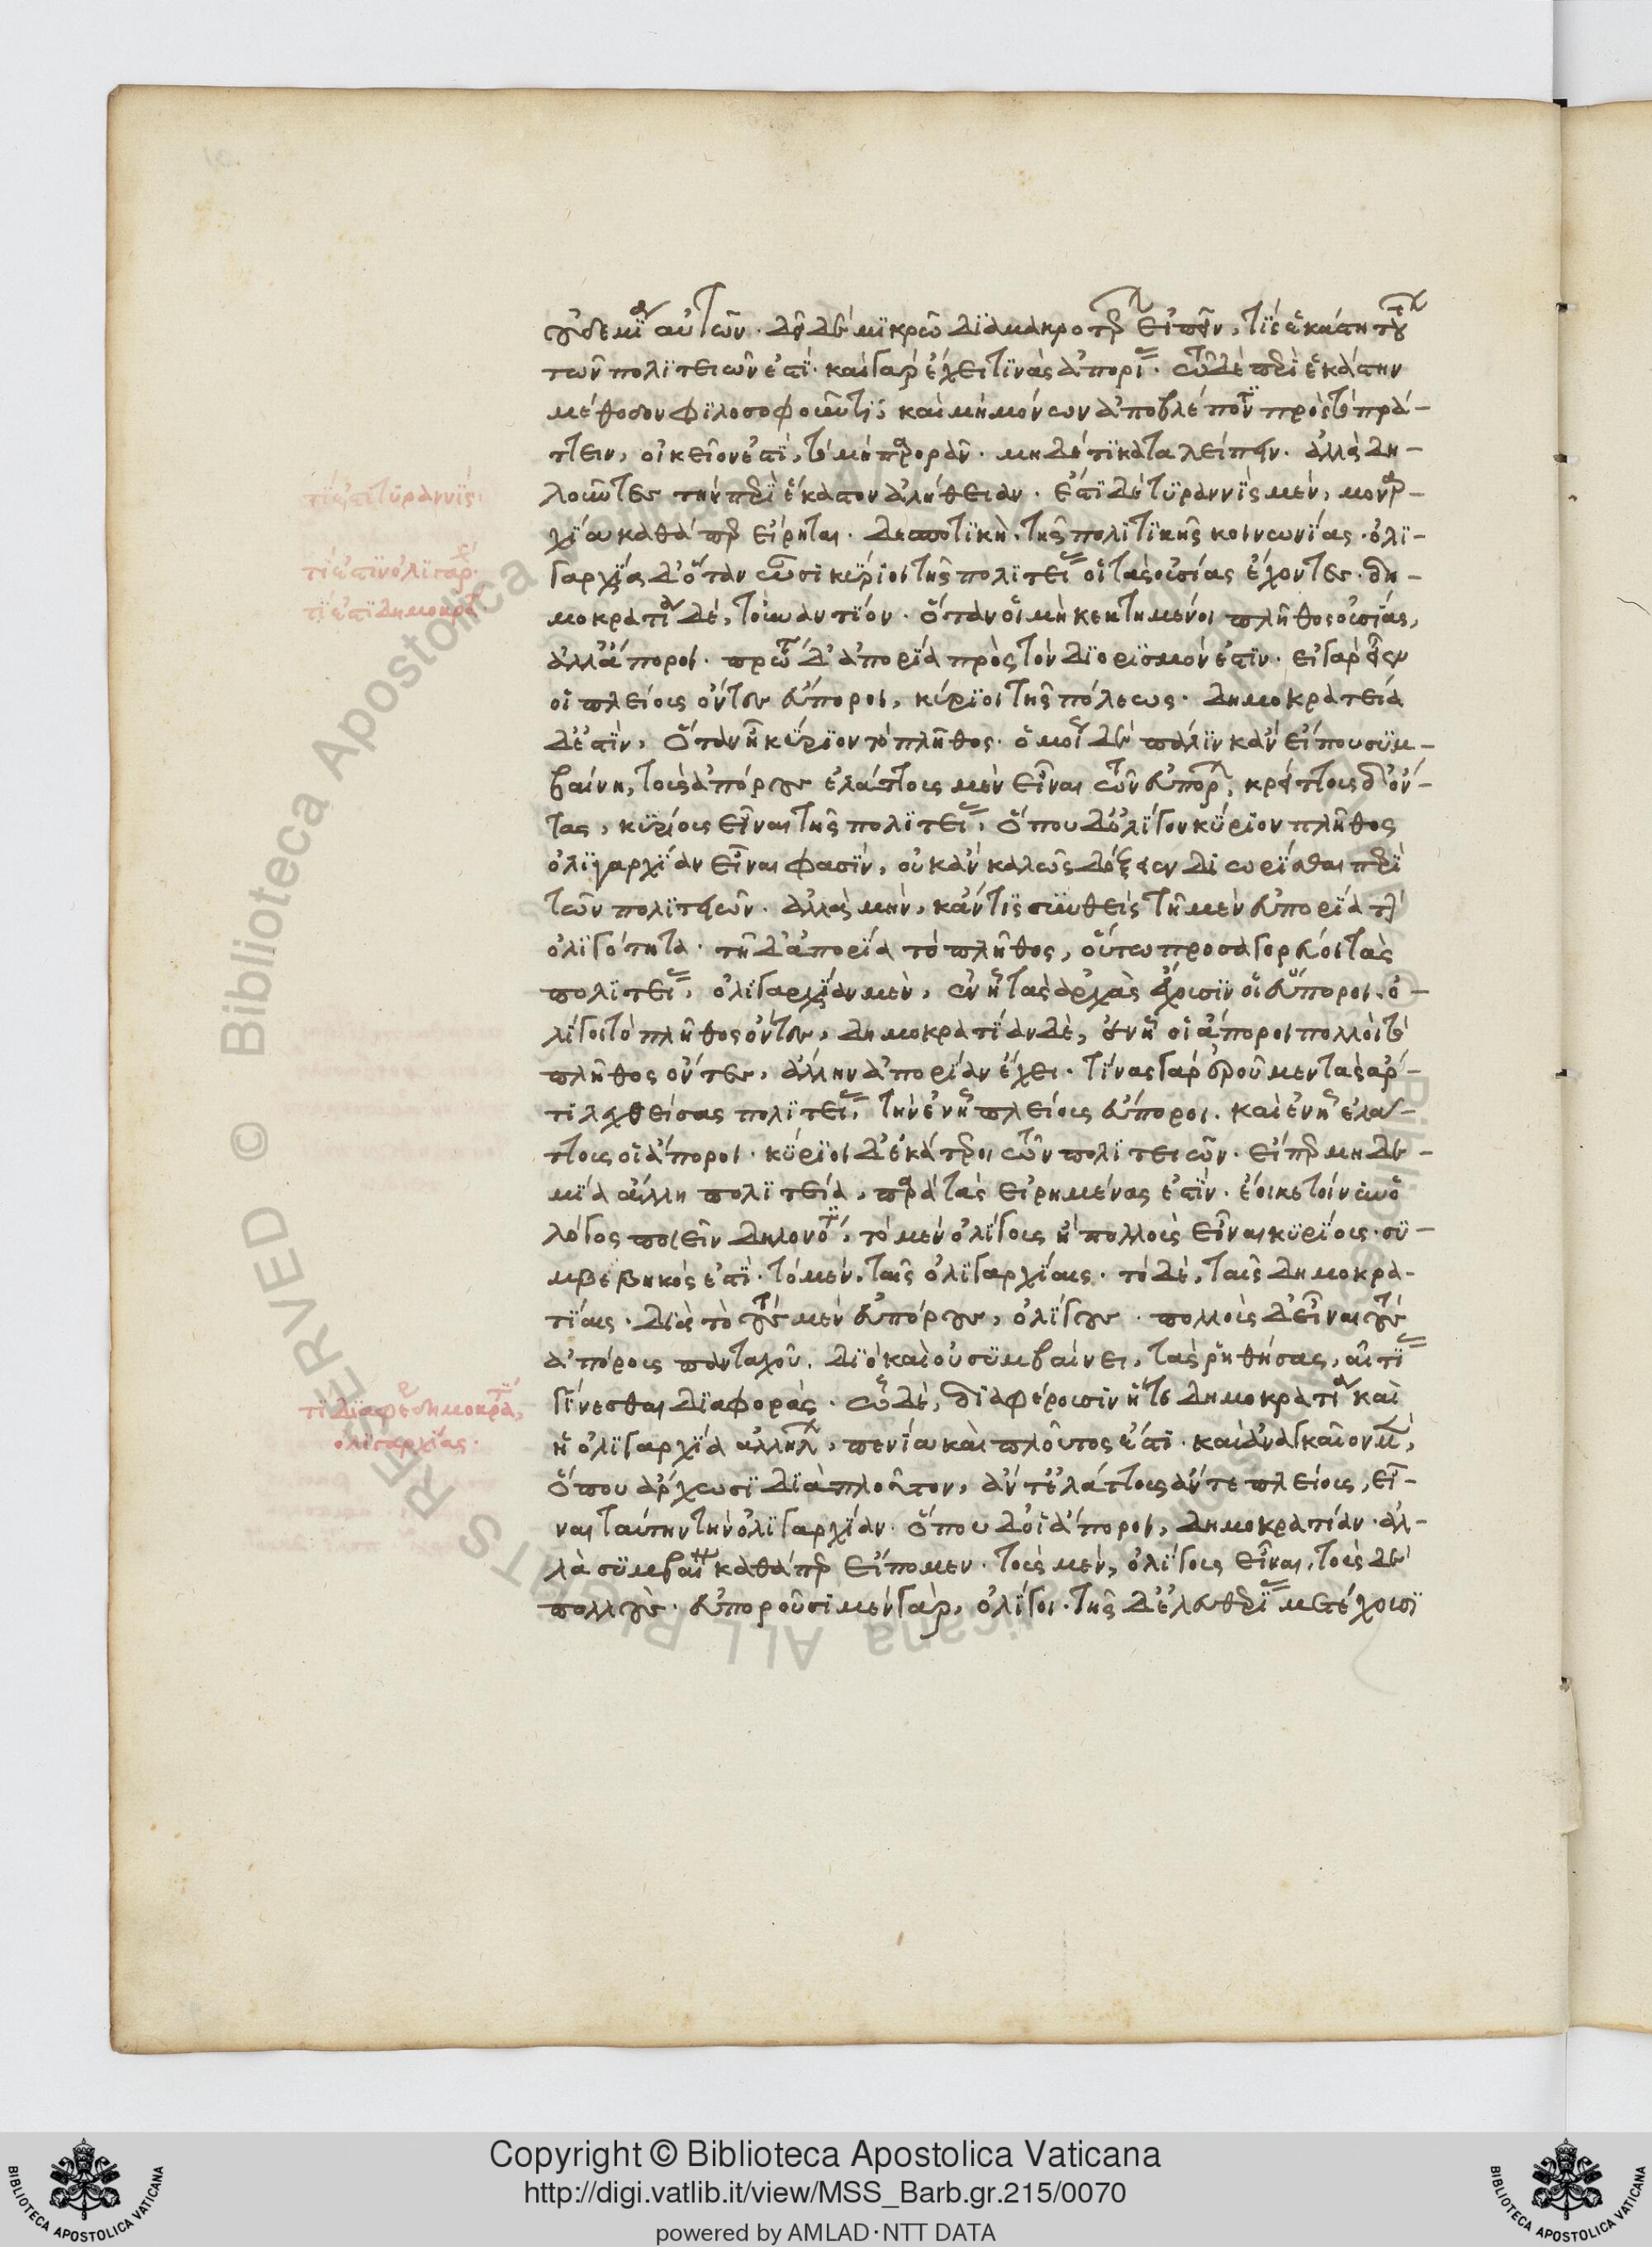 οὐδεμία αὐτῶν. δεῖ δὲ μικρῷ διὰ μακροτέρων εἰπεῖν, τίς ἑκάστη τούτων
τῶν πολιτειῶν ἐστί. καὶ γὰρ ἔχει τινὰς ἀπορίας. τῷ δὲ περὶ ἑκάστην
μέθοδον φιλοσοφοῦντι, καὶ μὴ μόνον ἀποβλέποντι πρὸς τὸ πρά-
ττειν, οἰκεῖον ἐστὶ, τὸ μὴ παρορᾶν. μηδέ τι καταλείπειν. ἀλλὰ δη-
λοῦντες τὴν περὶ ἕκαστον ἀλήθειαν. ἔστι δὲ τυραννὶς μὲν, μοναρ-
χία καθάπερ εἴρηται. δεσποτικὴ, τῆς πολιτικῆς κοινωνίας. ὀλι-
γαρχία δ' ὅταν ὦσι κύριοι τῆς πολιτείας οἱ τὰς οὐσίας ἔχοντες. δη-
μοκρατία δὲ, τοὐναντίον. ὅταν οἱ μὴ κεκτημένοι πλῆθος οὐσίας,
ἀλλ' ἄποροι. πρώτη δ' ἀπορία πρὸς τὸν διορισμόν ἐστιν. εἰ γὰρ εἶεν
οἱ πλείους ὄντες εὔποροι, κύριοι τῆς πόλεως. δημοκρατεία
δέ ἐστιν, ὅταν ᾖ κύριον τὸ πλῆθος. ὁμοίως δὲ πάλιν κἂν εἴ που συμ-
βαίνη, τοὺς ἀπόρους ἐλάττους μὲν εἶναι τῶν εὐπόρων, κρείττους δ' ὄν-
τας, κυρίους εἶναι τῆς πολιτείας, ὅπου δ' ὀλίγον κύριον πλῆθος
ὀλιγαρχίαν εἶναι φασίν, οὐκ ἂν καλῶς δόξειεν διωρίσθαι περὶ
τῶν πολιτειῶν. ἀλλὰ μὴν, κἄν τις συνθεὶς τῇ μὲν εὐπορία τὴν
ὀλιγότητα. τῇ δ' ἀπορία τὸ πλῆθος, οὕτω προσαγορεύοι τὰς
πολιτείας, ὀλιγαρχίαν μὲν, ἐν ᾗ τὰς ἀρχὰς ἔχουσιν οἱ εὔποροι. ὀ-
λίγοι τὸ πλῆθος ὄντες, δημοκρατίαν δὲ, ἐν ᾗ οἱ ἄποροι πολλοὶ τὸ
πλῆθος ὄντες, ἄλλην ἀπορίαν ἔχει. τίνας γὰρ ἐροῦμεν τὰς ἄρ-
τι λεχθείσας πολιτείας, τὴν ἐν ᾗ πλείους εὔποροι. καὶ ἐν ᾗ ἐλάτ-
τους οἱ ἄποροι. κύριοι δ' ἑκάτεροι τῶν πολιτειῶν. εἴπερ μηδε-
μία ἄλλη πολιτεία, παρὰ τὰς εἰρημένας ἐστίν. ἔοικε τοίνυν ὁ
λόγος ποιεῖν δῆλον ὅτι, τὸ μὲν ὀλίγους ἢ πολλοὺς εἶναι κυρίους. συ-
μβεβηκός ἐστι. τὸ μὲν, ταῖς ὀλιγαρχίαις. τὸ δὲ, ταῖς δημοκρα-
τίαις. διὰ τὸ τοὺς μὲν εὐπόρους, ὀλίγους. πολλοὺς δ' εἶναι τοὺς
ἀπόρους πανταχοῦ. διὸ καὶ οὐ συμβαίνει, τὰς ῥηθήσας, αἰτίας
γίνεσθαι διαφορᾶς. ᾧ δὲ, διαφέρουσιν ἥ τε δημοκρατία καὶ
ἡ ὀλιγαρχία ἀλλήλων, πενία καὶ πλοῦτος ἐστὶ. καὶ ἀναγκαῖον μὲν,
ὅπου ἄρχωσι διὰ πλοῦτον, ἄν τ' ἐλάττους ἄν τε πλείους, εἶ-
ναι ταύτην τὴν ὀλιγαρχίαν. ὅπου δ' οἱ ἄποροι, δημοκρατίαν. ἀλ-
λὰ συμβαίνει καθάπερ εἴπομεν. τοὺς μὲν, ὀλίγους εἶναι, τοὺς δὲ
πολλούς. εὐποροῦσι μὲν γὰρ, ὀλίγοι. τῆς δ' ἐλευθερίας μετέχουσι
τί ἐστι τυραννίς.
τί ἐστιν ὀλιγαρχία.
τί ἐστι δημοκρατία.
τί διαφέρει δημοκρατία,
ὀλιγαρχίας.
Copyright © Biblioteca Apostolica Vaticana
http://digi.vatlib.it/view/MSS_Barb.gr.215/0070
powered by AMLAD·NTT DATA
BIBLIOTECA APOSTOLICA VATICANA
BIBLIOTECA APOSTOLICA VATICANA